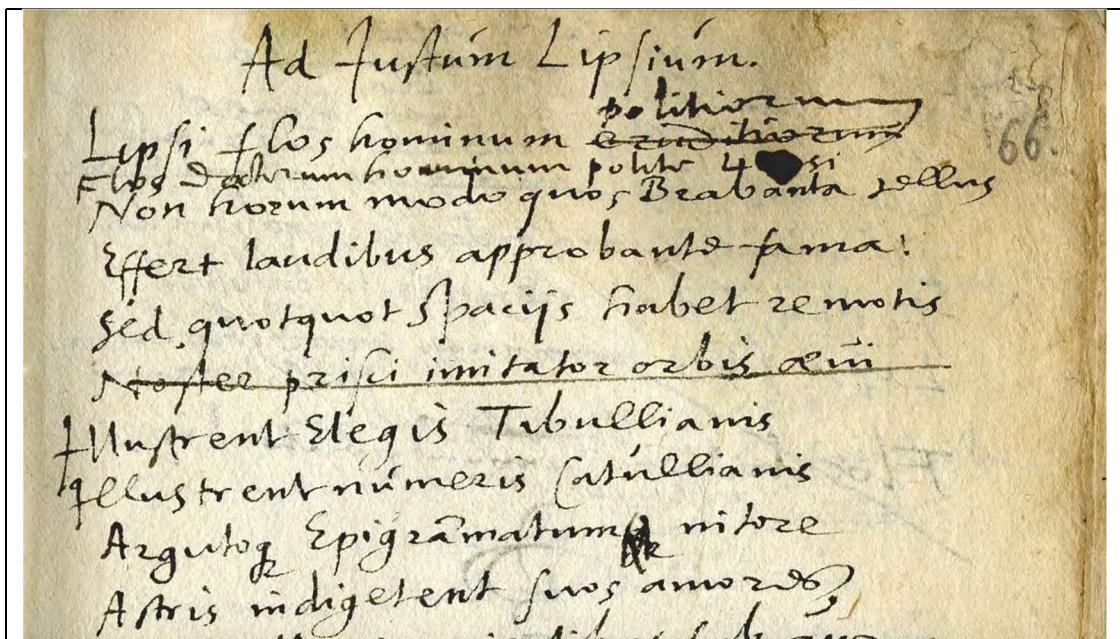 Ad Justúm Lipsiúm.
66.
politiorum
Lipsi flos hominum eruditiorum
Flos Doctorum hominum polite Lipsi
Non horum modo quos Brabanta tellus
Effert laudibus approbante fama:
Sed quotquot Spaciijs habet remotis
Noster prisci imitator orbis æui
Illustrent Elegis Tibullianis
Illustrent númeris Catúllianis
Argutoq Epigrāmatum nitore
Astris indigetent suos amores,